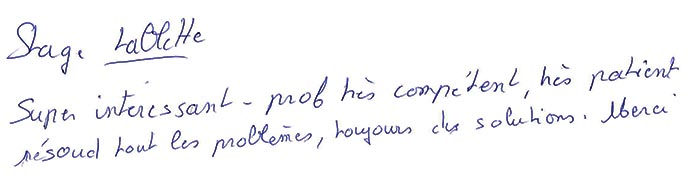 Stage tablette
Super intéressant - prof très compétent, très patient
résoud tout les problèmes, toujours des solutions. Merci